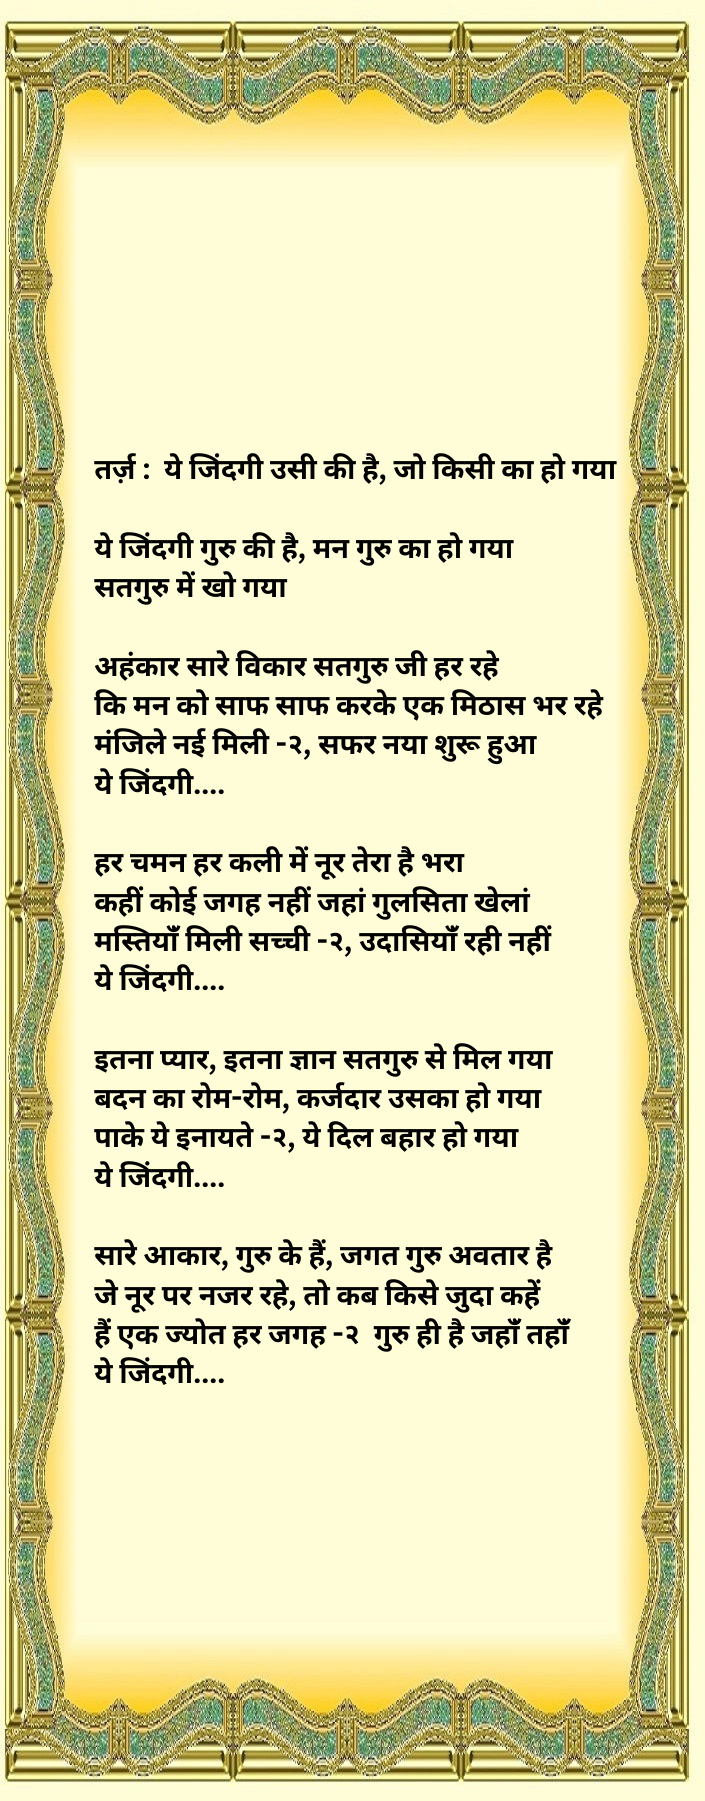 तर्ज़ :  ये जिंदगी उसी की है, जो किसी का हो गया
ये जिंदगी गुरु की है, मन गुरु का हो गया
सतगुरु में खो गया
अहंकार सारे विकार सतगुरु जी हर रहे
कि मन को साफ साफ करके एक मिठास भर रहे
मंजिले नई मिली -२, सफर नया शुरू हुआ
ये जिंदगी....
हर चमन हर कली में नूर तेरा है भरा
कहीं कोई जगह नहीं जहां गुलसिता खेलां
मस्तियाँ मिली सच्ची -२, उदासियाँ रही नहीं
ये जिंदगी....
इतना प्यार, इतना ज्ञान सतगुरु से मिल गया
बदन का रोम-रोम, कर्जदार उसका हो गया
पाके ये इनायते -२, ये दिल बहार हो गया
ये जिंदगी....
सारे आकार, गुरु के हैं, जगत गुरु अवतार है
जे नूर पर नजर रहे, तो कब किसे जुदा कहें
हैं एक ज्योत हर जगह -२  गुरु ही है जहाँ तहाँ
ये जिंदगी....